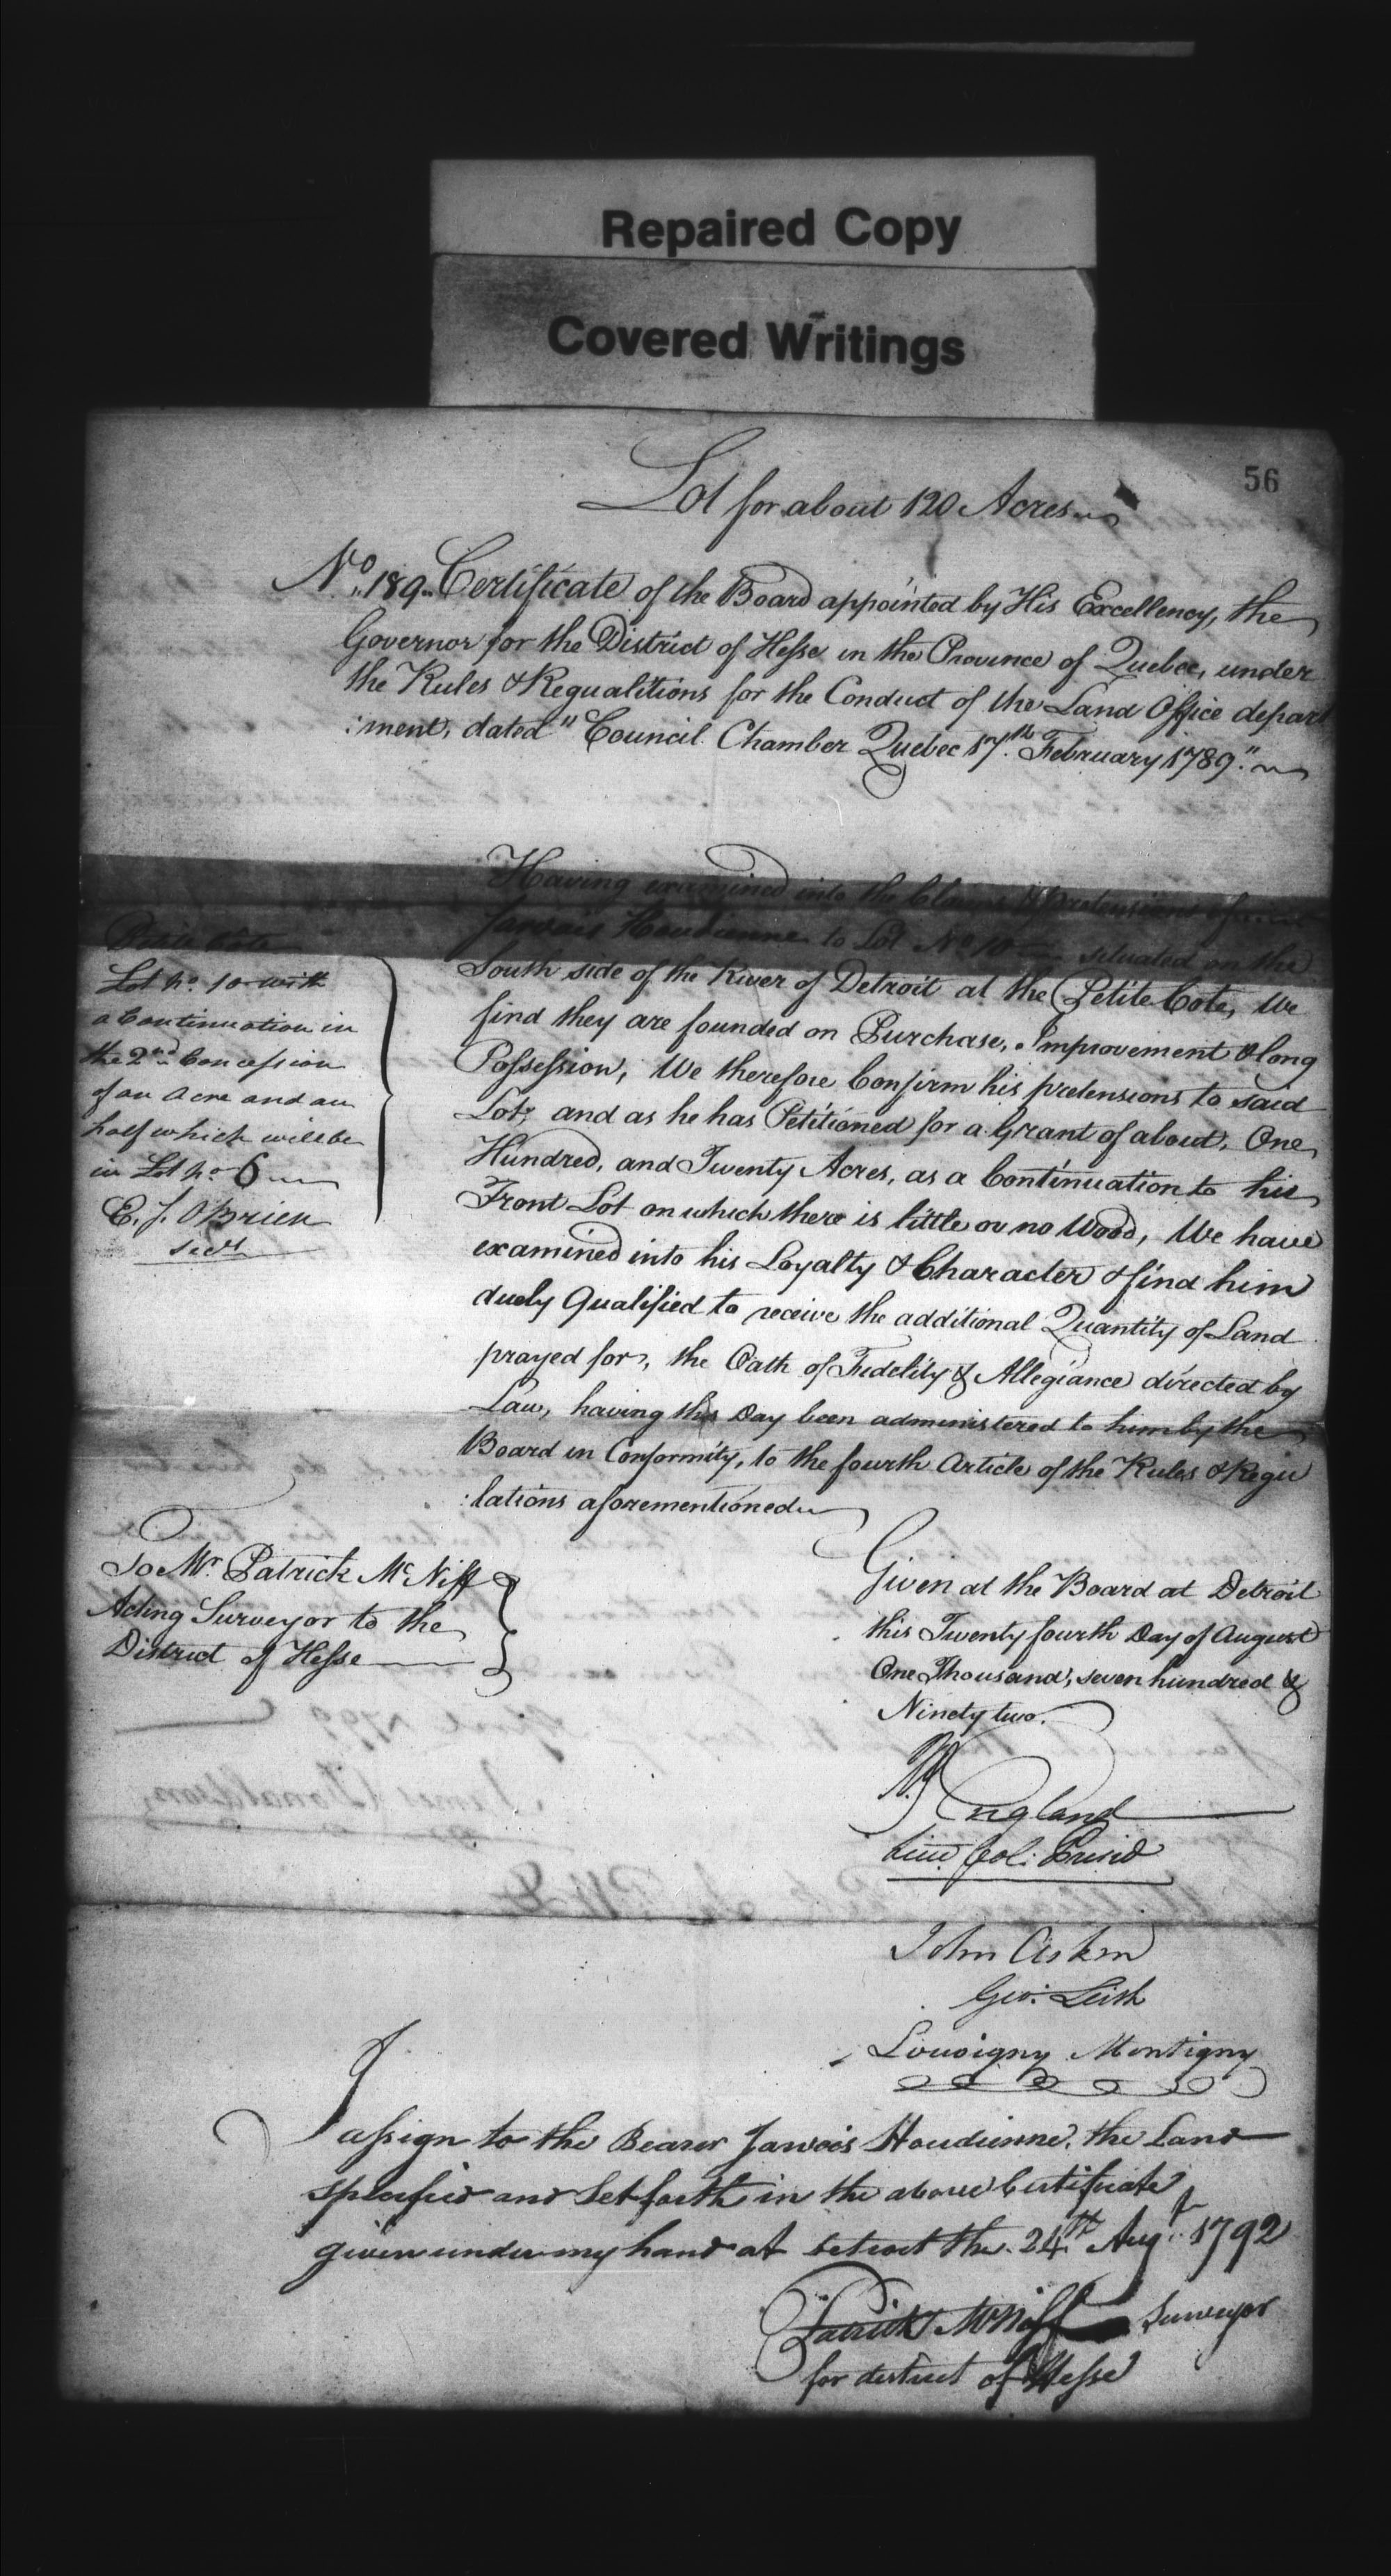 Repaired Copy
Covered Writings
56
Lot for about 120 Acres
No. 189. Certificate of the Board appointed by His Excellency, the
Governor for the District of Hesse in the Province of Quebec, under
the Rules & Regualitions for the Conduct of the Land Office depart
:ment, dated "Council Chamber Quebec 17th. February 1789."
Having examined into the Claims & Pretensions of
Jarvais Houdienne to Lot No. 10 situated on the
South side of the River of Detroit at the Petite Cote, We
find they are founded on Purchase, Improvement & long
Possession; We therefore Confirm his pretensions to said
Lot; and as he has Petitioned for a Grant of about, One
Hundred, and Twenty Acres, as a Continuation to his
Front Lot on which there is little or no Wood, We have
examined into his Loyalty & Character & find him
duely Qualified to receive the additional Quantity of Land
prayed for, the Oath of Fidelity & Allegiance directed by
Law, having this Day been administered to him by the
Board in Conformity, to the fourth Article of the Rules & Regu
:lations aforementioned
Petite Côte
Lot No. 10 with
a Continuation in
the 2nd. Concession
of an Acre and an
half which will be
in Lot No. 6
E. J. OBrien
Secy
To Mr. Patrick McNiff
Acting Surveyor to the
District of Hesse
Given at the Board at Detroit
this Twenty fourth Day of August
One Thousand, seven hundred &
Ninety two.
R England
Lieu Col: Presid
John Askin
Geo: Leith
Louvigny Montigny
I assign to the Bearer Jarvois Houdienne, the Land
specified and Set forth in the above Certificate
given under my hand at detroit the 24th Augt. 1792
Patrick McNiff Surveyor
for district of Hesse